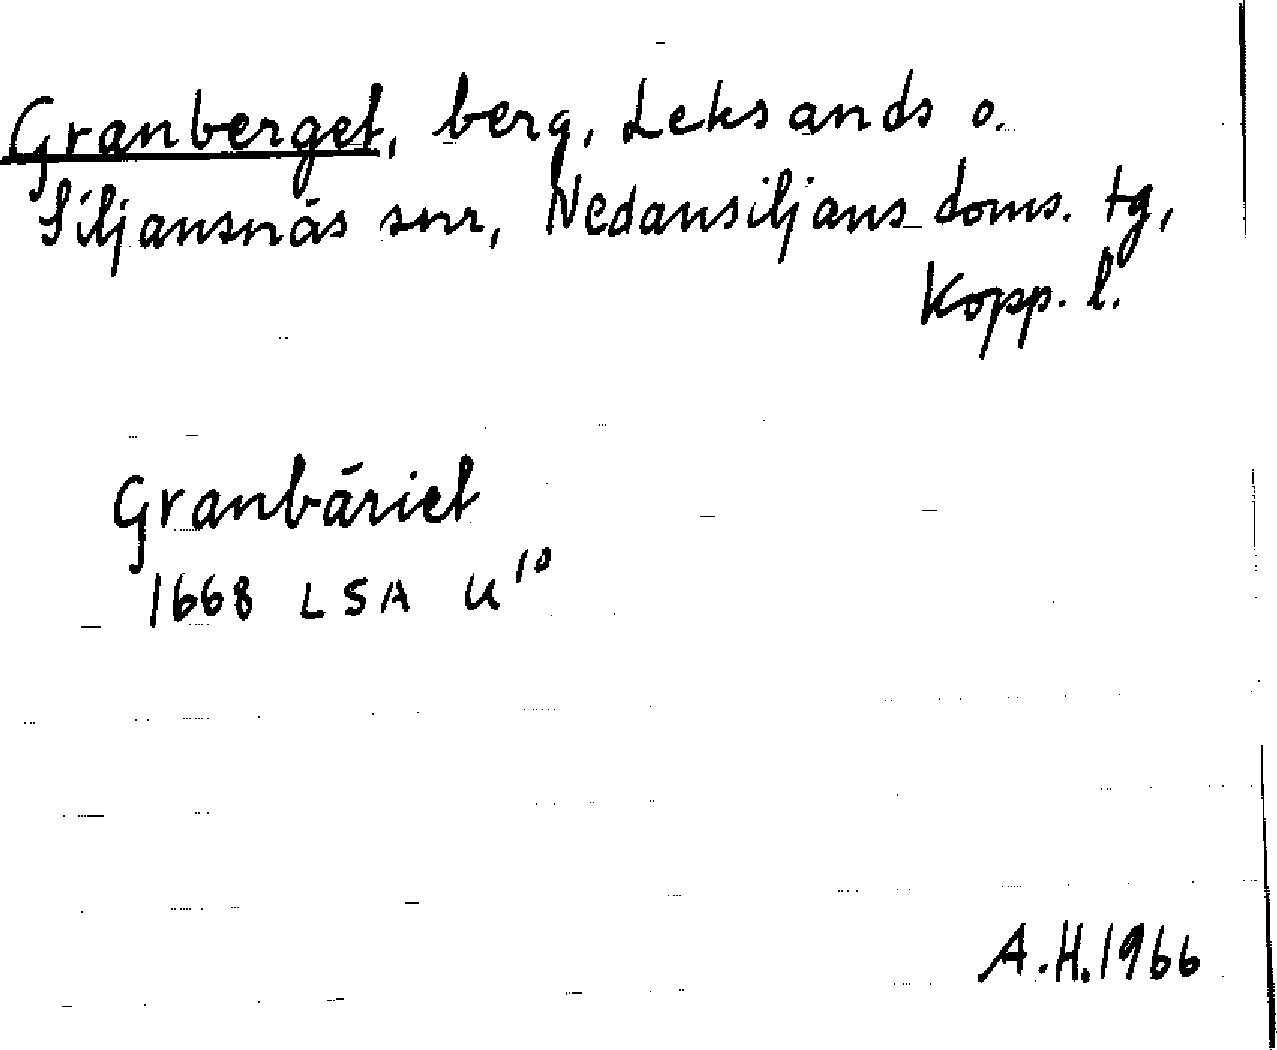 Granberget, berg, Leksands o.
Siljansnäs snr, Nedansiljans doms. tg,
Kopp. l.
Granbäriet
1668 LSA U 10
A.H. 1966